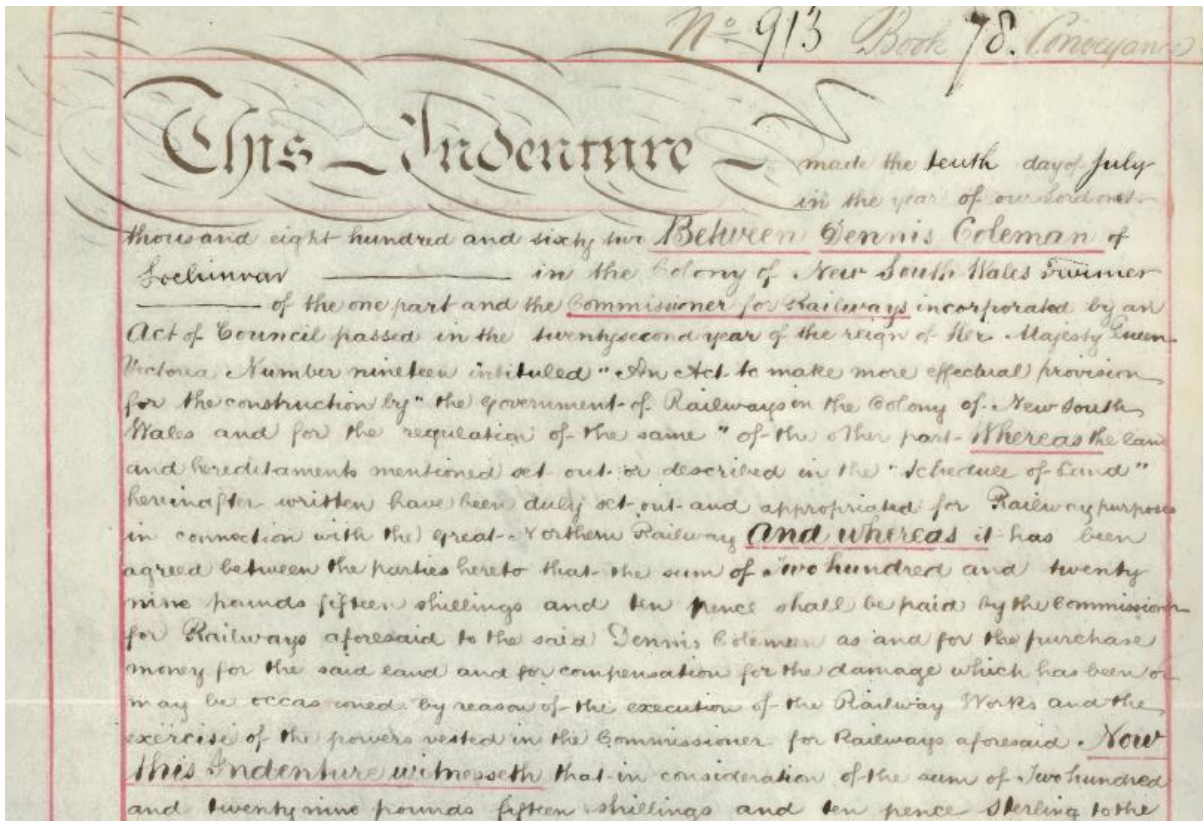 No 913 Book 78. Conveyance
This Indenture made the tenth day of July
in the year of our Lord one
thousand eight hundred and sixty two Between Dennis Coleman of
Lochinvar in the Colony of New South Wales
of the one part and the Commissioner for Railways incorporated by an
Act of Council passed in the twentysecond year of the reign of Her Majesty Queen
Victoria Number nineteen intituled "An Act to make more effectual provision
for the construction by "the Government of Railways in the Colony of New South
Wales and for the regulation of the same" of the other part Whereas the lan
and hereditaments mentioned set out or described in the "Schedule of Land"
hereinafter written have been duly set out and appropriated for Railway purposes
in connection with the Great Northern Railway And whereas it has been
agreed between the parties hereto that the sum of Two hundred and twenty
nine pounds fifteen shillings and ten pence shall be paid by the Commissioner
for Railways aforesaid to the said Dennis Coleman as and for the purchase
money for the said land and for compensation for the damage which has been or
may be occasioned by reason of the execution of the Railway Works and the
exercise of the powers vested in the Commissioner for Railways aforesaid Now
this Indenture witnesseth that in consideration of the sum of Two hundred
and twenty nine pounds fifteen shillings and ten pence Sterling to the